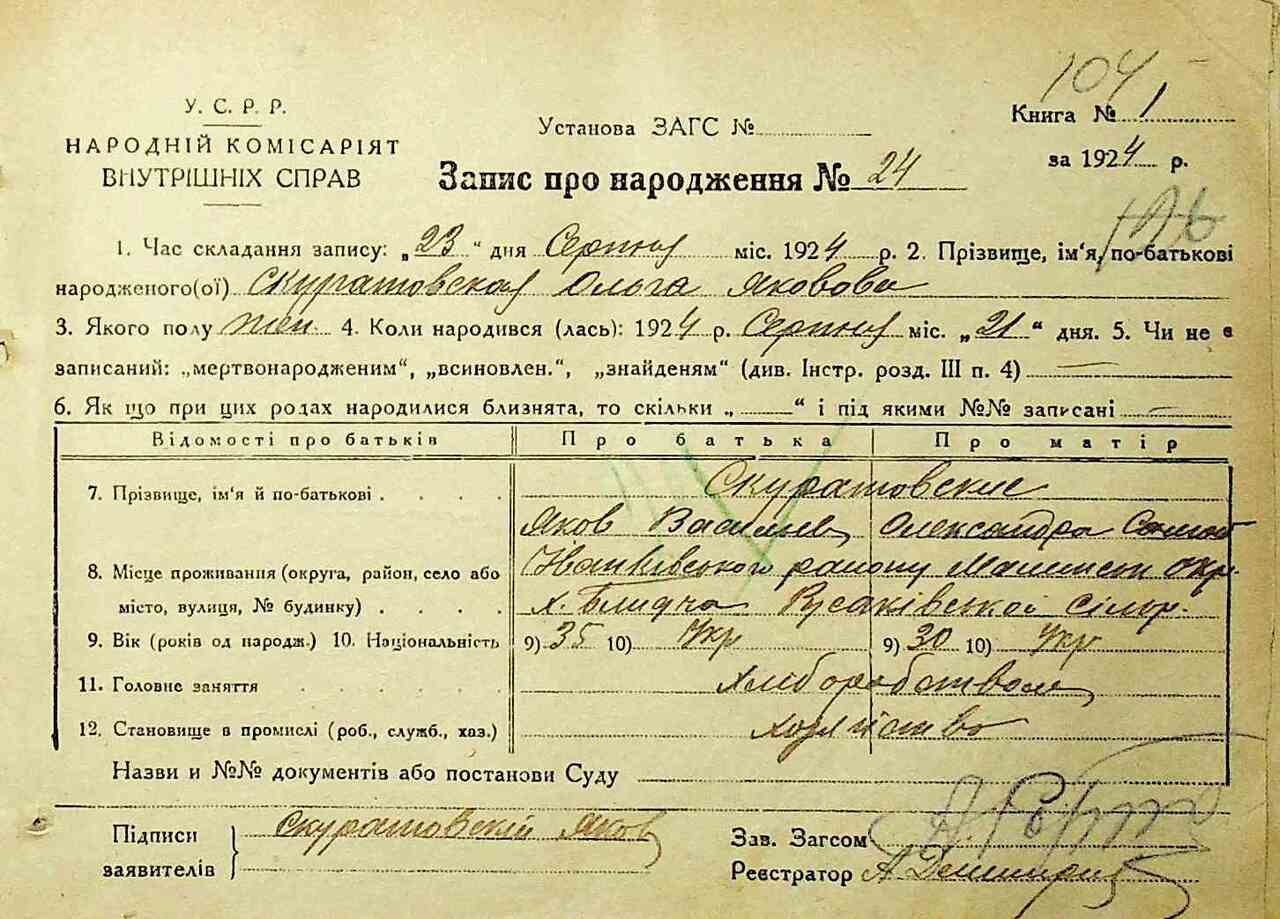 104
У. С. Р. Р.
НАРОДНІЙ КОМІСАРІЯТ
ВНУТРІШНІХ СПРАВ
Установа ЗАГС №
Книга № 1
за 1924 р.
Запис про народження № 24
1. Час складання запису: „23" дня Серпня міс. 1924 р. 2. Прізвище, ім'я, по-батькові
народженого(ої) Скуратовская Ольга Яковова
3. Якого полу жен. 4. Коли народився (лась): 1924 р. Серпня міс. „21" дня. 5. Чи не є
записаний: „мертвонародженим", „всиновлен.", „знайденям" (див. Інстр. розд. III п. 4) —
6. Як що при цих родах народилися близнята, то скільки „ " і під якими №№ записані —
Відомості про батьків Про батька Про матір
7. Прізвище, ім'я й по-батькові . . . . Скуратовские
Яков Васильев Олександра
8. Місце проживання (округа, район, село або Іванківського району окр.
місто, вулиця, № будинку) . . . . х. Блидча Русаківської сільр.
9. Вік (років од народж.) 10. Національність 9) 35 10) Укр 9) 30 10) Укр
11. Головне заняття . . . . . . Хлиборобством
12. Становище в промислі (роб., служб., хаз.)
Назви и №№ документів або постанови Суду
Підписи Скуратовскій Яков
заявителів
Зав. Загсом
Реєстратор А